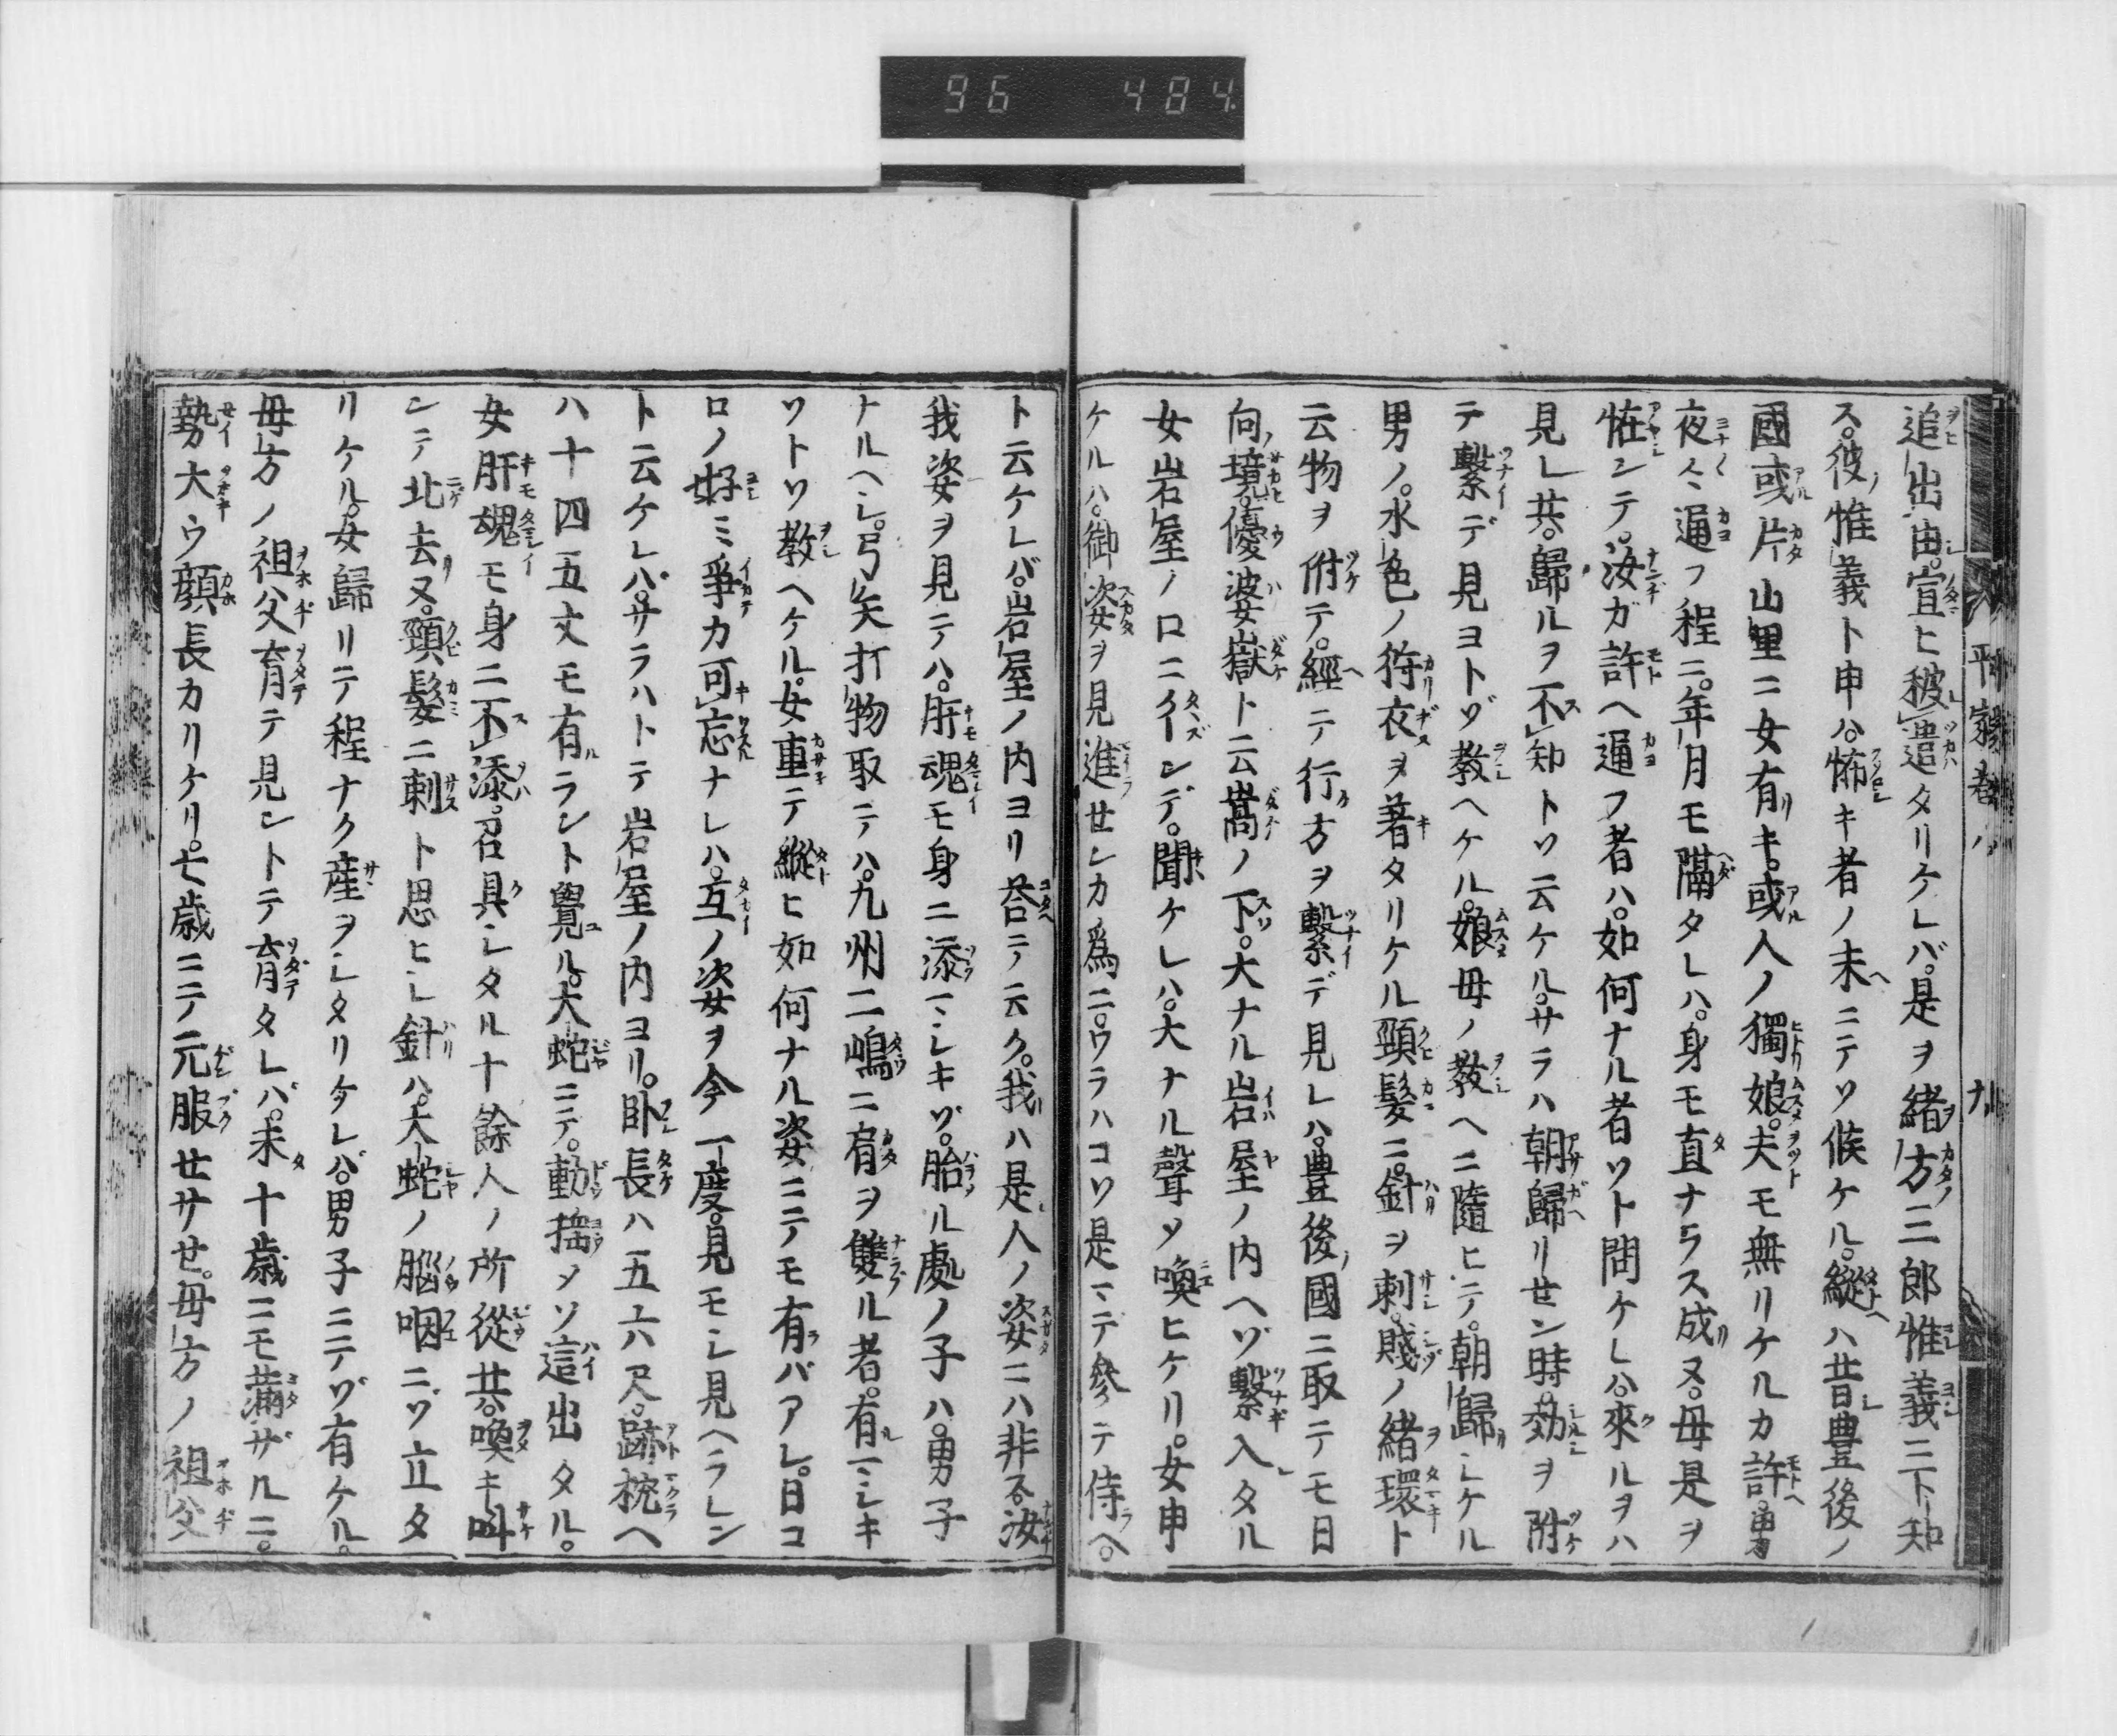 96 484.
平家巻八
追出由。宣ヒ被遣タリケレバ。是ヲ緒方三郎惟義ニ下知
ス。彼惟義ト申ハ。怖キ者ノ末ニテソ候ケル。縦ハ昔豊後ノ
國或片山里ニ女有キ。或人ノ獨娘。夫モ無リケルカ許。男
夜々通フ程ニ。年月モ隔タレハ。身モ直ナラス成ヌ。母是ヲ
恠シテ。汝ガ許ヘ通フ者ハ。如何ナル者ソト問ケレハ。來ルヲハ
見レ共。歸ルヲ不知トソ云ケル。サラハ朝歸リセン時。効ヲ附
テ繫デ見ヨトゾ教ヘケル。娘母ノ教ヘニ隨ヒテ。朝歸シケル
男ノ。水色ノ狩夜ヲ著タリケル頸髪ニ。針ヲ刺。賤ノ緒環ト
云物ヲ附テ。經テ行方ヲ繫デ見レハ。豊後國ニ取テモ日
向境。優婆嶽ト云嵩ノ下。大ナル岩屋ノ内ヘゾ繫入タル
女岩屋ノ口ニ彳ンデ。聞ケレハ。大ナル聲メ喚ヒケリ。女申
ケルハ。御姿ヲ見進セシカ爲ニ。ワラハコソ是マデ參テ侍ヘ。
ト云ケレバ。岩屋ノ内ヨリ荅テ云ク。我ハ是人ノ姿ニハ非ス。汝
我姿ヲ見テハ。肝魂モ身ニ添マシキゾ。胎ル處ノ子ハ。男子
ナルヘシ。弓矢打物取テハ。九州二嶋ニ肩ヲ雙ル者。有マシキ
ソトソ教ヘケル。女重テ縦ヒ如何ナル姿ニテモ有バアレ。日コ
ロノ好ミ爭カ可忘ナレハ。互ノ姿ヲ今一度。見モシ見ヘラレン
ト云ケレバ。サラハトテ岩屋ノ内ヨリ。臥長ハ五六尺。跡枕ヘ
ハ十四五丈モ有ラント覺ル。大蛇ニテ。動揺メソ這出タル。
女肝魂モ身ニ不添。召具シタル十餘人ノ所從共。喚キ叫
ンテ北去ヌ。頸髪ニ刺ト思ヒシ針ハ。大蛇ノ脳咽ニゾ立タ
リケル。女歸リテ程ナク産ヲシタリケレバ。男子ニテゾ有ケル。
母方ノ祖父育テ見ントテ育タレバ。未十歳ニモ滿ザルニ。
勢大ウ顔長カリケリ。七歳ニテ元服セサせ。母方ノ祖父